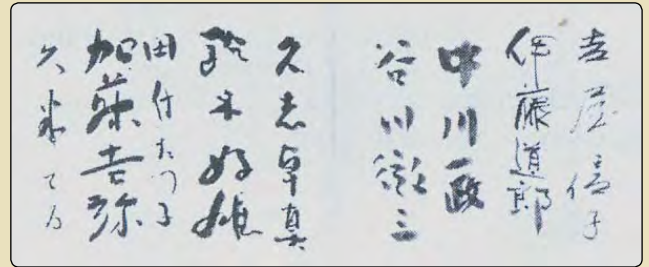 吉屋信子
伊藤道郎
中川一政
谷川徹三
久志卓真
鈴木好雄
田付たつ子
加藤吉弥
久米てる